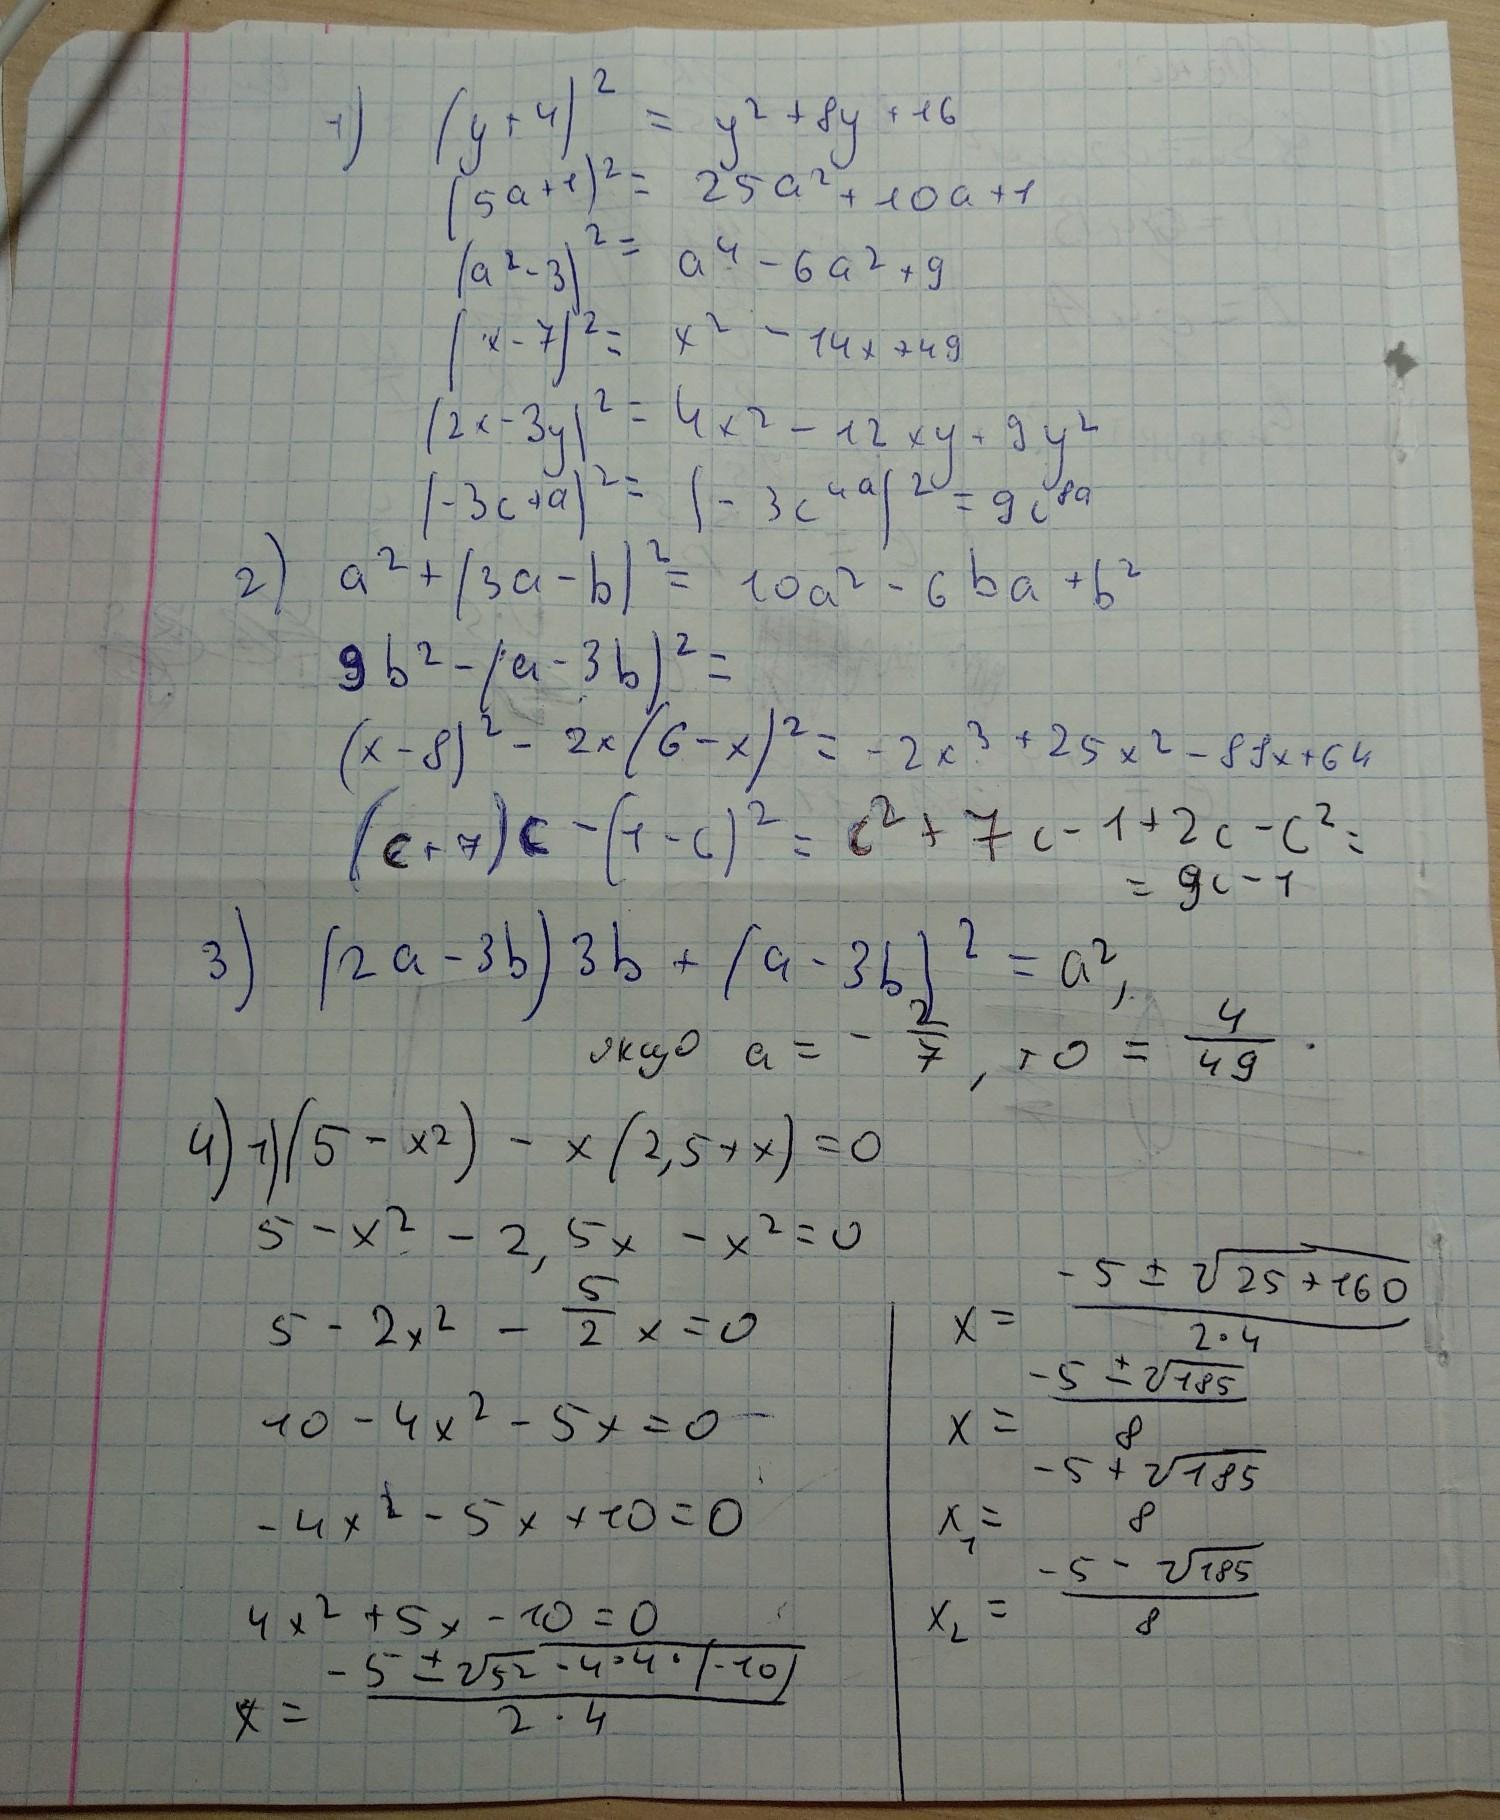 1) (y+4)² = y²+8y+16
(5a+1)² = 25a²+10a+1
(a²-3)² = a⁴-6a²+9
(x-7)² = x²-14x+49
(2x-3y)² = 4x²-12xy+9y²
(-3c+a)² = (-3c⁴ᵃ)² = 9c⁸ᵃ
2) a²+(3a-b)² = 10a²-6ba+b²
9b²-(a-3b)² =
(x-8)²-2x(6-x)² = -2x³+25x²-88x+64
(c+7)c-(1-c)² = c²+7c-1+2c-c² =
= 9c-1
3) (2a-3b)3b+(a-3b)² = a²,
якщо a = -2/7, то = 4/49.
4) 1) (5-x²)-x(2,5+x)=0
5-x²-2,5x-x²=0
5-2x²-5/2x=0
10-4x²-5x=0
-4x²-5x+10=0
4x²+5x-10=0
x = (-5±√(5²-4·4·(-10)))/(2·4)
x = (-5±√(25+160))/(2·4)
x = (-5±√185)/8
x₁ = (-5+√185)/8
x₂ = (-5-√185)/8